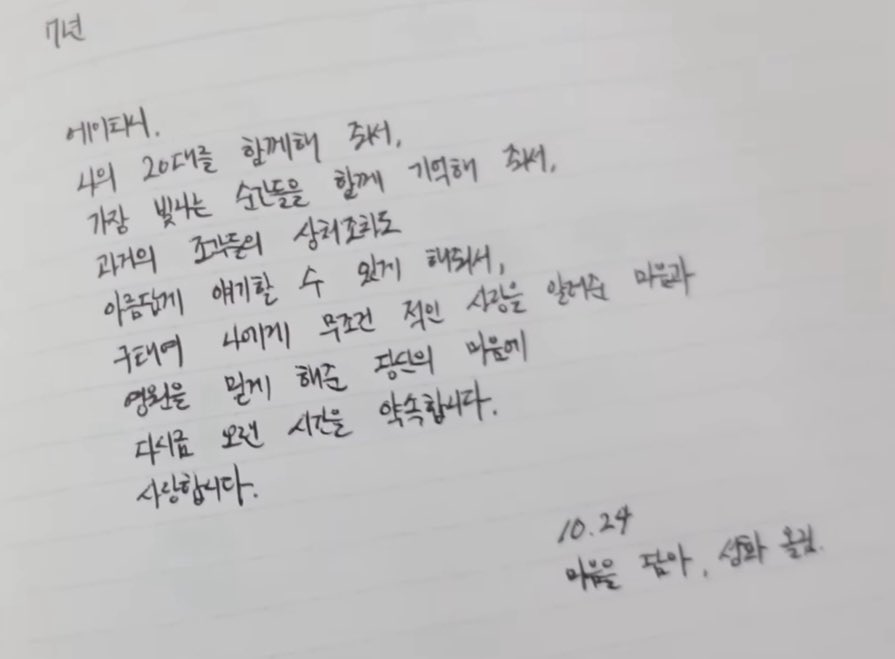 7년
에이티니.
나의 20대를 함께해 줘서,
가장 빛나는 순간들을 함께 기억해 줘서,
과거의 조각들의 상처조차도
아름답게 얘기할 수 있게 해줘서,
구태여 나에게 무조건 적인 사랑을 알려준 마음과
영원을 믿게 해준 당신의 마음에
다시금 오랜 시간을 약속합니다.
사랑합니다.
10.24
마음을 담아, 성화 올림.